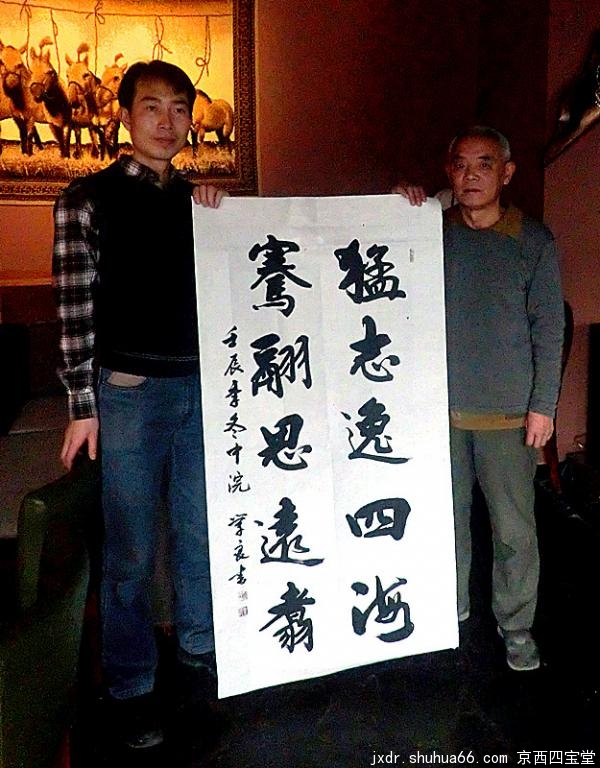 猛志逸四海
騫翮思遠翥
壬辰季冬中浣
jxdr.shuhua66.com 京西四宝堂